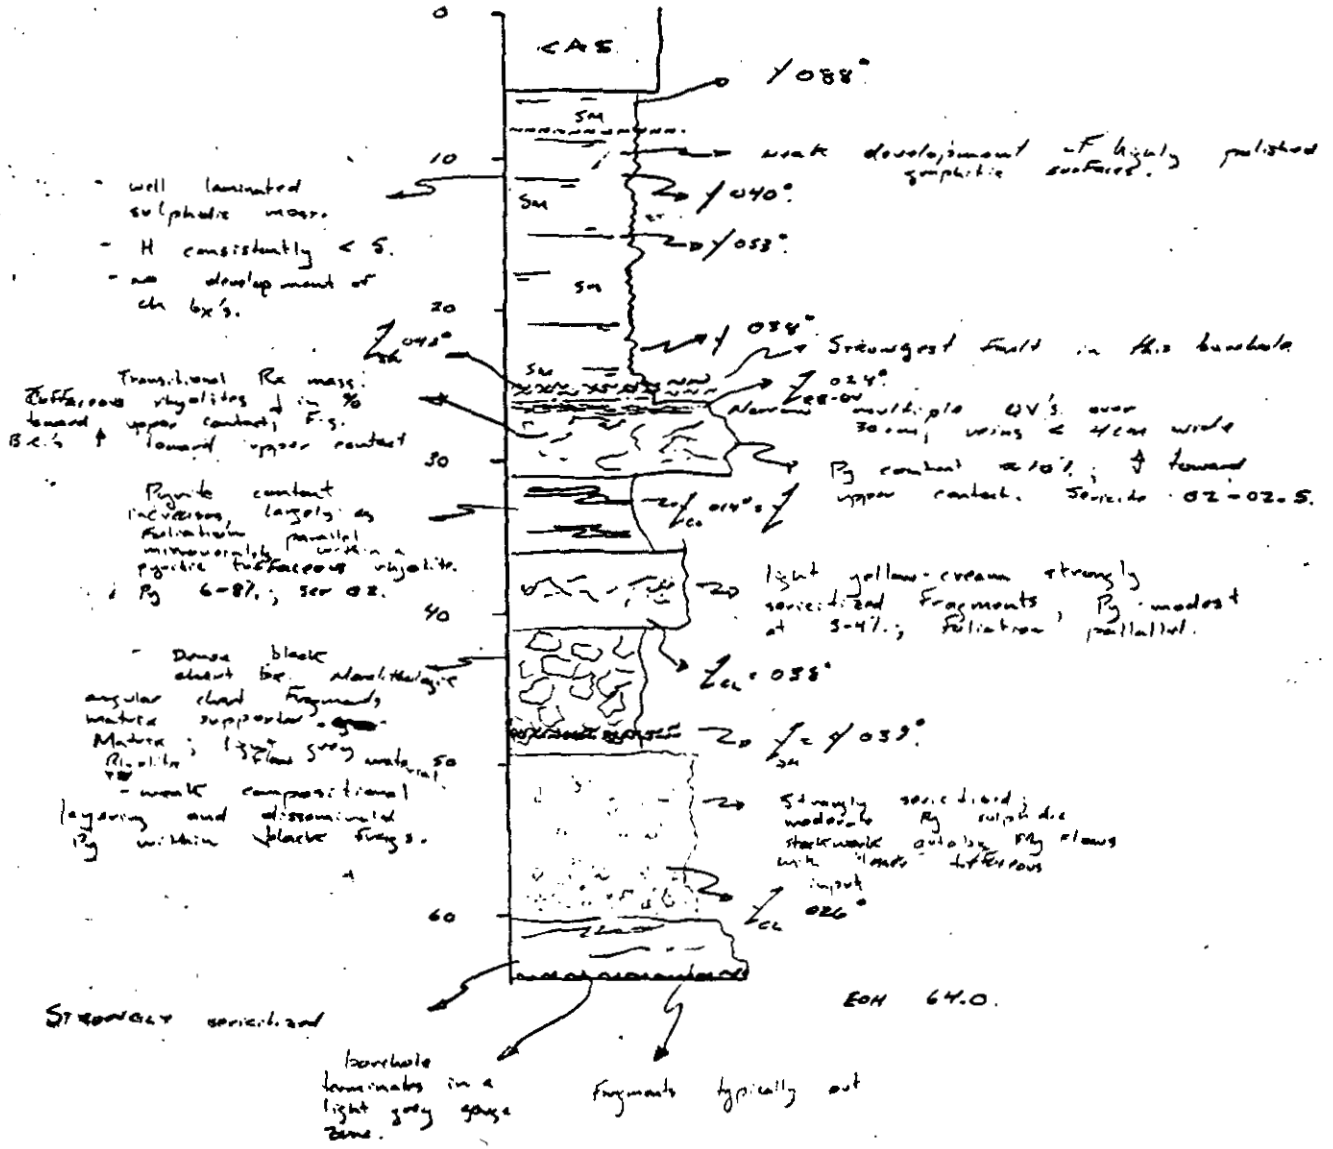 0
CAS
088°
SM
10
weak development of highly polished
graphitic surfaces.
- well laminated
sulphidic
SM
040°
- H consistently < 5.
053°
- no development of
ch bx's.
SM
20
038°
Strongest fault in this borehole
SM
Transitional Rx mass.
Tuffaceous rhyolites in %
toward upper contact, F.g.
toward upper contact
024°
Narrow multiple QV's over
30 cm, veins < 4cm wide
30
Py content ≈10%; ↑ toward
upper contact. Sericite 02-02.5.
Pyrite content
increases, largely as
foliation parallel
within a
pyritic tuffaceous rhyolite.
Py 6-8%; ser 02.
light yellow-cream strongly
sericitized fragments, Py modest
at 3-4%; foliation parallel.
40
- Dense black
chert bx. Monolithologic
angular chert fragments
matrix supported
Matrix; light grey
flow material.
038°
039°
50
- weak compositional
layering and disseminated
Py within black frags.
Strongly sericitized;
moderate Py sulphidic
stockwork
with tuffaceous
input
026°
60
EOH 64.0.
STRONGLY sericitized
borehole
terminates in a
light grey gouge
zone.
Fragments typically out